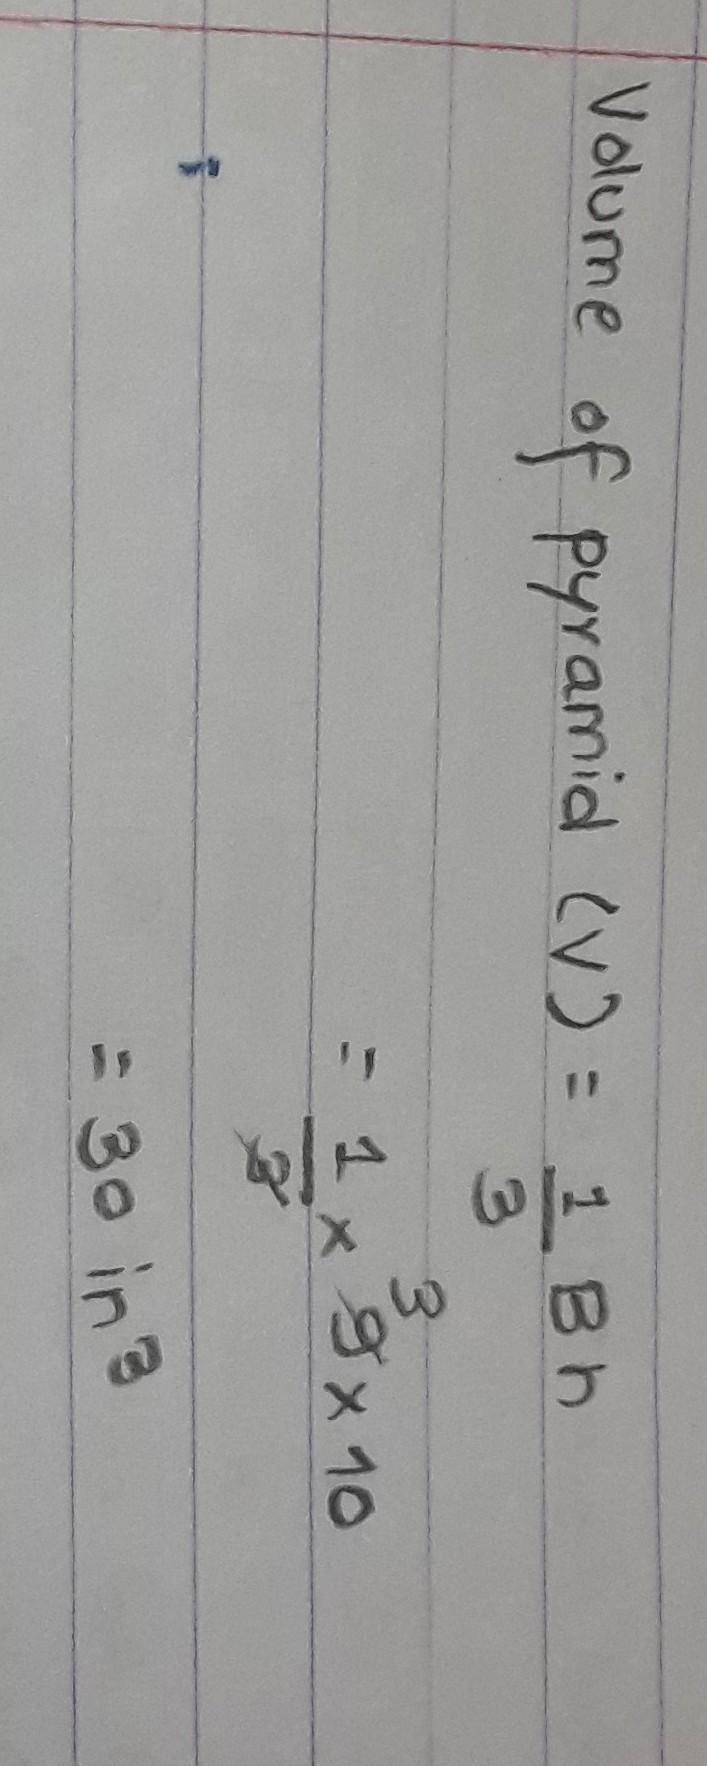 Volume of pyramid (V) = 1/3 Bh
= 1/3 x 9 3 x 10
= 30 in³